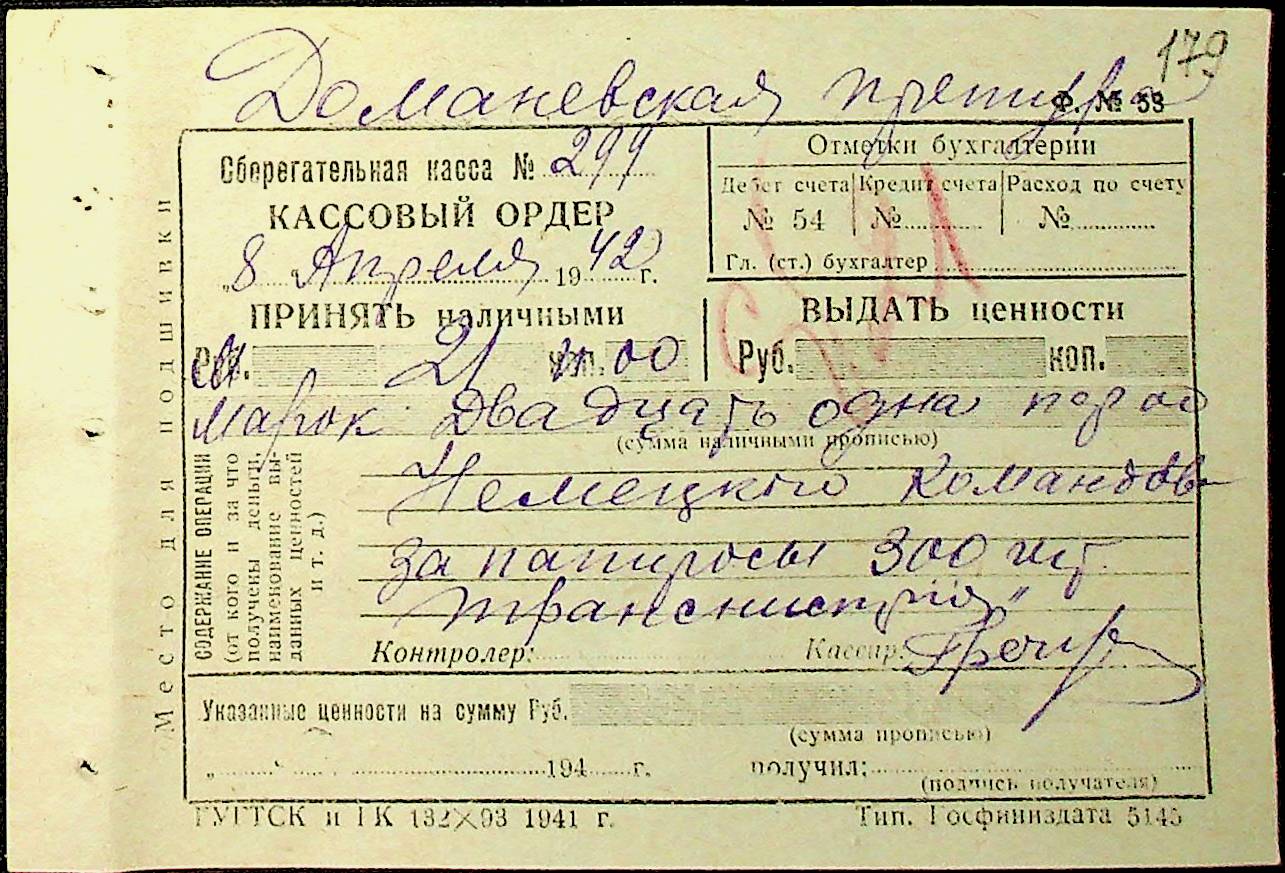 179
Доманевская претура
Ф. № 53
Сберегательная касса № 299
КАССОВЫЙ ОРДЕР
„8 Апреля 1942 г.
Отметки бухгалтерии
Дебет счета Кредит счета Расход по счету
№ 54 №........ №........
Гл. (ст.) бухгалтер
ПРИНЯТЬ наличными
ВЫДАТЬ ценности
21 00
Руб. коп.
марок Двадцать одна
(сумма наличными прописью)
Немецкого Командов
за папиросы 300 шт.
Транснистрия"
Место для подшивки
СОДЕРЖАНИЕ ОПЕРАЦИИ
(от кого и за что
получены деньги,
наименование вы-
данных ценностей
и т. д.)
Контролер:
Кассир:
Указанные ценности на сумму Руб.
(сумма прописью)
„........" ........194....г.
получил:
(подпись получателя)
ГУГТСК и ГК 132X93 1941 г.
Тип. Госфиниздата 5145